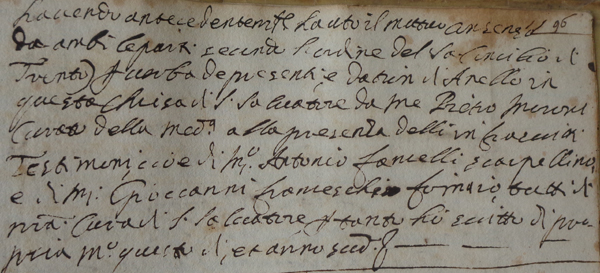 havendo antecedentemte hauto il mutuo consenso 96
da ambi le parti secundo l'ordine del Sa Concilio di
Trento) p verba de presenti, e datun d'Anello in
questa Chiesa di S. Salvatore da me Pietro
Curato della medª alla presenza delli infrascritti
Testimonij cioè di Mº. Antonio fancelli scarpellino
e di Mº. Giovanni franceschi fornaio tutti di
nrã Cura di S. Salvatore p tanto hò scritto di pro-
pria mº questo dì, et anno sudº